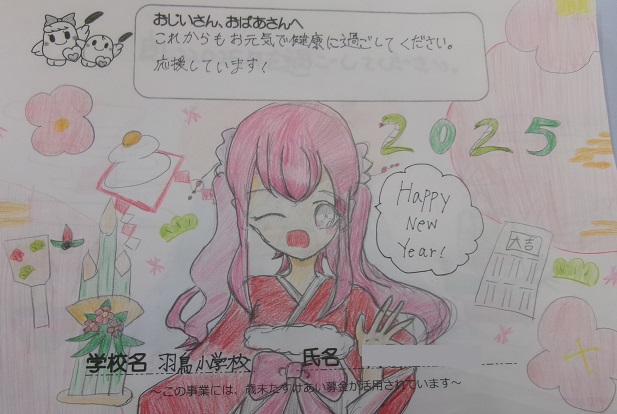 おじいさん、おばあさんへ
これからもお元気で健康に過ごしてください。
応援しています！
2025
Happy
New
Year!
大吉
学校名 羽鳥小学校 氏名
〜この事業には、歳末たすけあい募金が活用されています〜